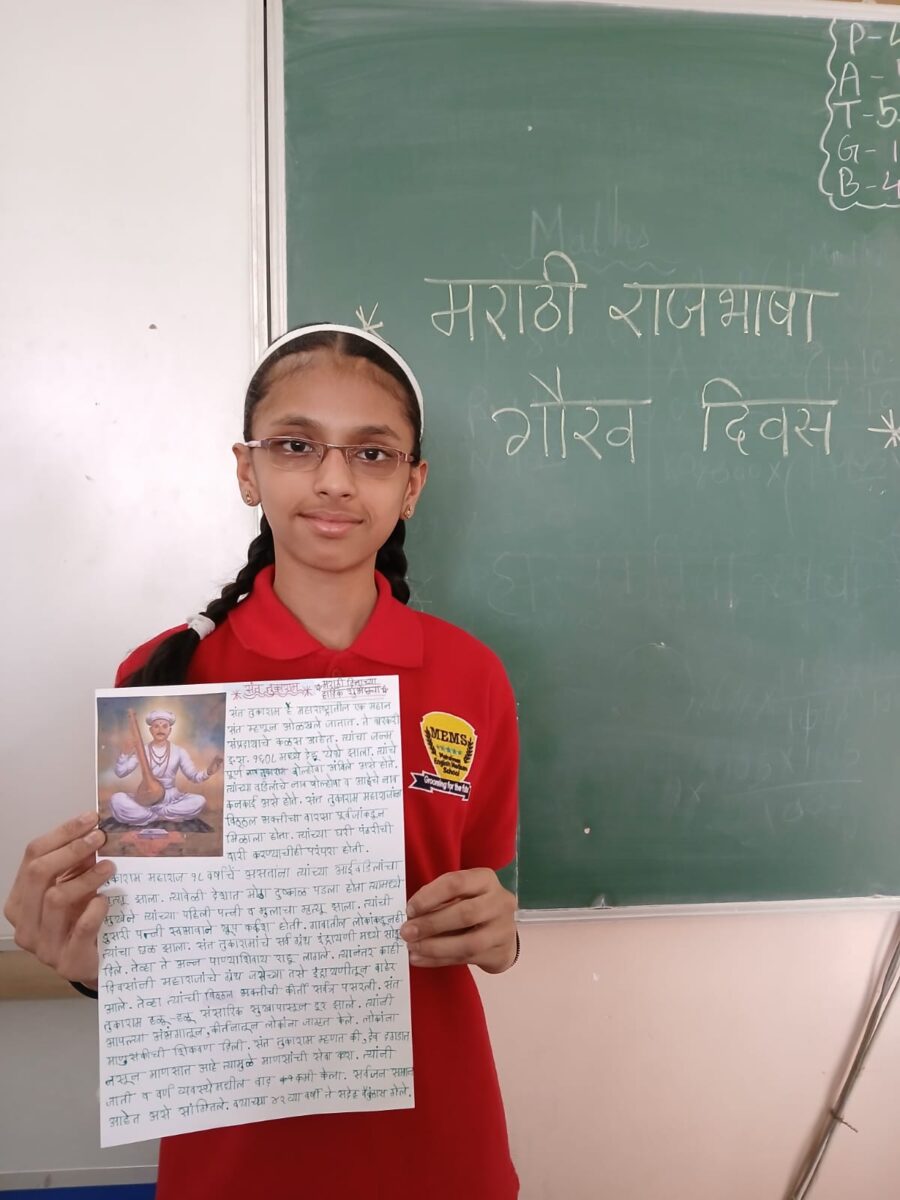 P-
A-
T-5
G-1
B-4
Maths
* मराठी राजभाषा
गौरव दिवस *
* संत तुकाराम * मराठी दिनाच्या
हार्दिक शुभेच्छा
संत तुकाराम हे महाराष्ट्रातील एक महान
संत म्हणून ओळखले जातात. ते वारकरी
संप्रदायाचे कळस आहेत. त्यांचा जन्म
इ.स. १६०८ मध्ये देहू येथे झाला. त्यांचे
पूर्ण नाव तुकाराम बोल्होबा अंबिले असे होते.
त्यांच्या वडिलांचे नाव बोल्होबा व आईचे नाव
कनकाई असे होते. संत तुकाराम महाराजांना
विठ्ठल भक्तीचा वारसा पूर्वजांकडून
मिळाला होता. त्यांच्या घरी पंढरीची
वारी करण्याचीही परंपरा होती.
तुकाराम महाराज १८ वर्षांचे असताना त्यांच्या आईवडिलांचा
मृत्यू झाला. त्यावेळी देशात मोठा दुष्काळ पडला होता त्यामध्ये
भुखेने त्यांच्या पहिली पत्नी व मुलाचा मृत्यू झाला. त्यांची
दुसरी पत्नी स्वभावाने खूप कर्कश होती. गावातील लोकांकडूनही
त्यांचा छळ झाला. संत तुकारामांचे सर्व ग्रंथ इंद्रायणी मध्ये सोडून
दिले. तेव्हा ते अन्न पाण्याशिवाय राहू लागले. त्यानंतर काही
दिवसांनी महाराजांचे ग्रंथ जसेच्या तसे इंद्रायणीतून बाहेर
आले. तेव्हा त्यांची विठ्ठल भक्तीची कीर्ती सर्वत्र पसरली. संत
तुकाराम हळू-हळू संसारिक सुखापासून दूर झाले. त्यांनी
आपल्या अभंगातून, कीर्तनातून लोकांना जागृत केले. लोकांना
माणुसकीची शिकवण दिली. संत तुकाराम म्हणत की, देव दगडात
नसून माणसात आहे त्यामुळे माणसांची सेवा करा. त्यांनी
जाती व वर्ण व्यवस्थेमधील वाद कमी केला. सर्वजन समान
आहेत असे सांगितले. वयाच्या ४२ व्या वर्षी ते सदेह वैकुंठास गेले.
MEMS
English Medium
School
Grooming for the